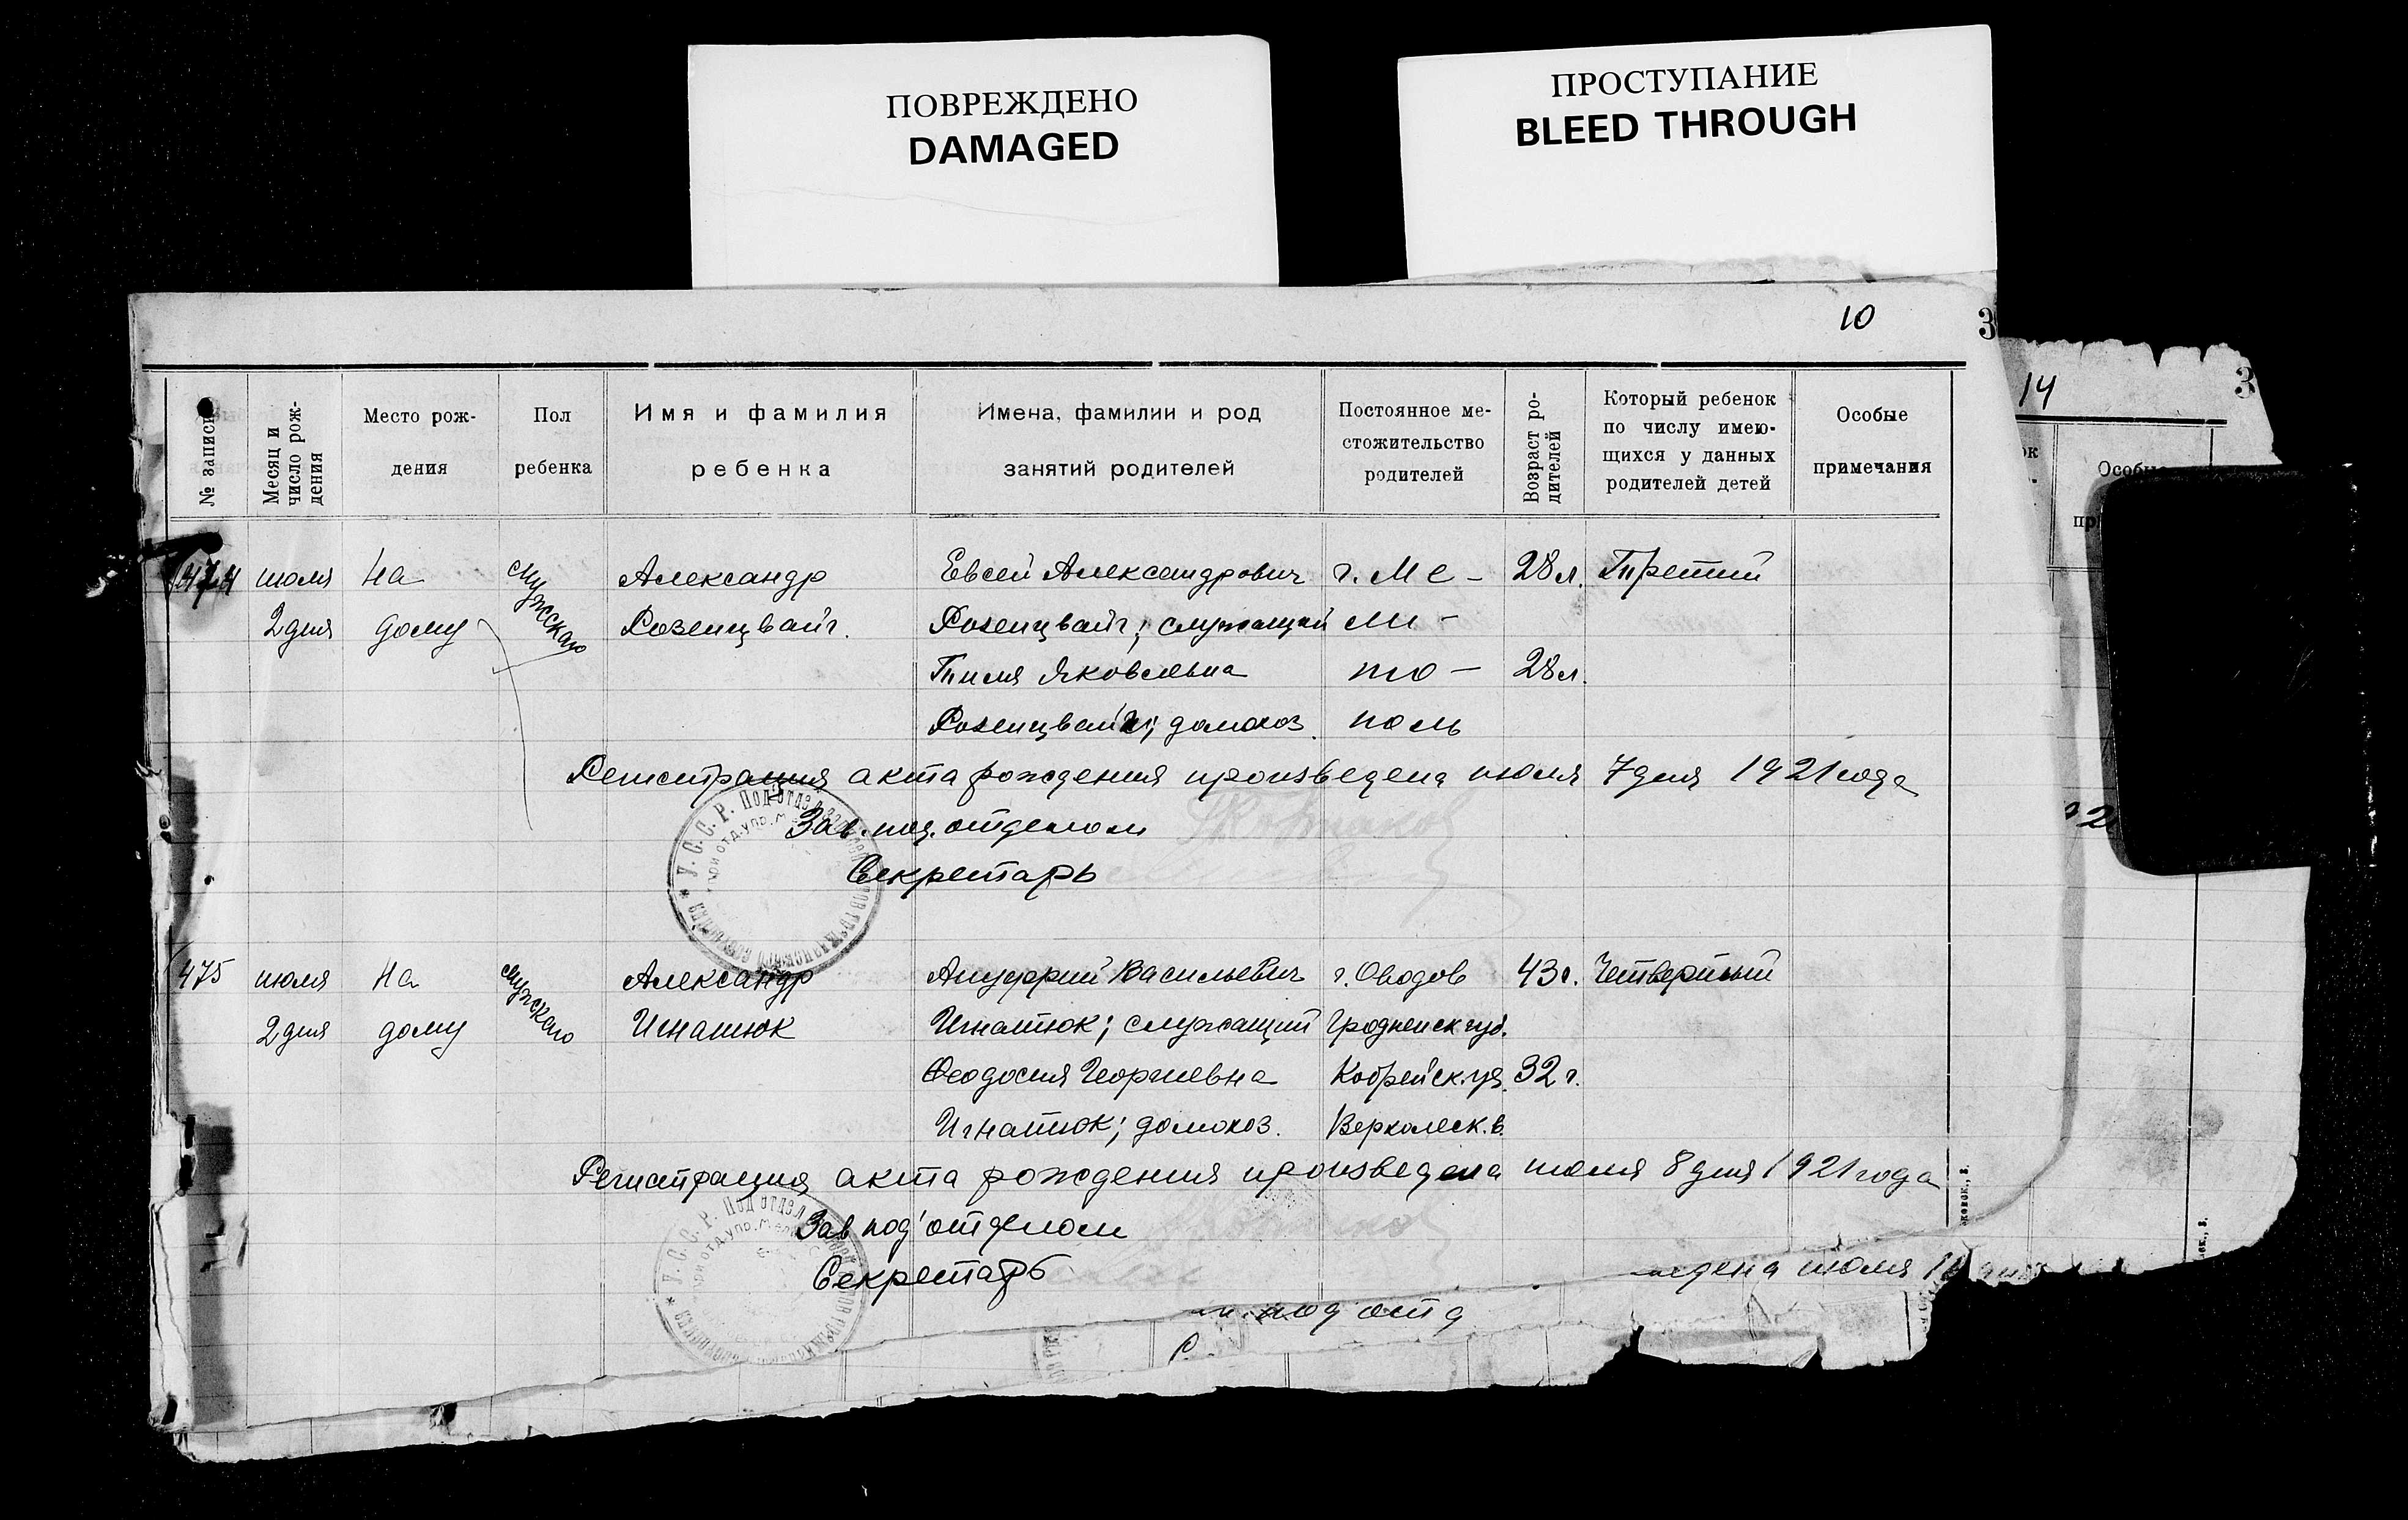 ПОВРЕЖДЕНО
DAMAGED
ПРОСТУПАНИЕ
BLEED THROUGH
10
3
14
3
№ записи
Месяц и число рождения
Место рож-
дения
Пол
ребенка
Имя и фамилия
ребенка
Имена, фамилии и род
занятий родителей
Постоянное ме-
стожительство
родителей
Возраст ро-
дителей
Который ребенок
по числу имею-
щихся у данных
родителей детей
Особые
примечания
474 июля На мужского Александр Евсей Александрович г. Ме- 28 л. Третий
2 дня дому Розенцвайг. Розенцвайг; служащий ли-
Яковлевна то- 28 л.
Розенцвайг; домохоз. поль
Регистрация акта рождения произведена июля 7 дня 1921 года
Зав. под. отделом
Секретарь
475 июля На мужского Александр Ануфрий Васильевич г. 43 г. Четвертый
2 дня дому Игнатюк Игнатюк; служащий Гродненск губ.
Феодосия Георгиевна 32 г.
Игнатюк; домохоз. Верхолеск. в.
Регистрация акта рождения произведена июля 8 дня 1921 года
Зав под'отделом
Секретарь
июля